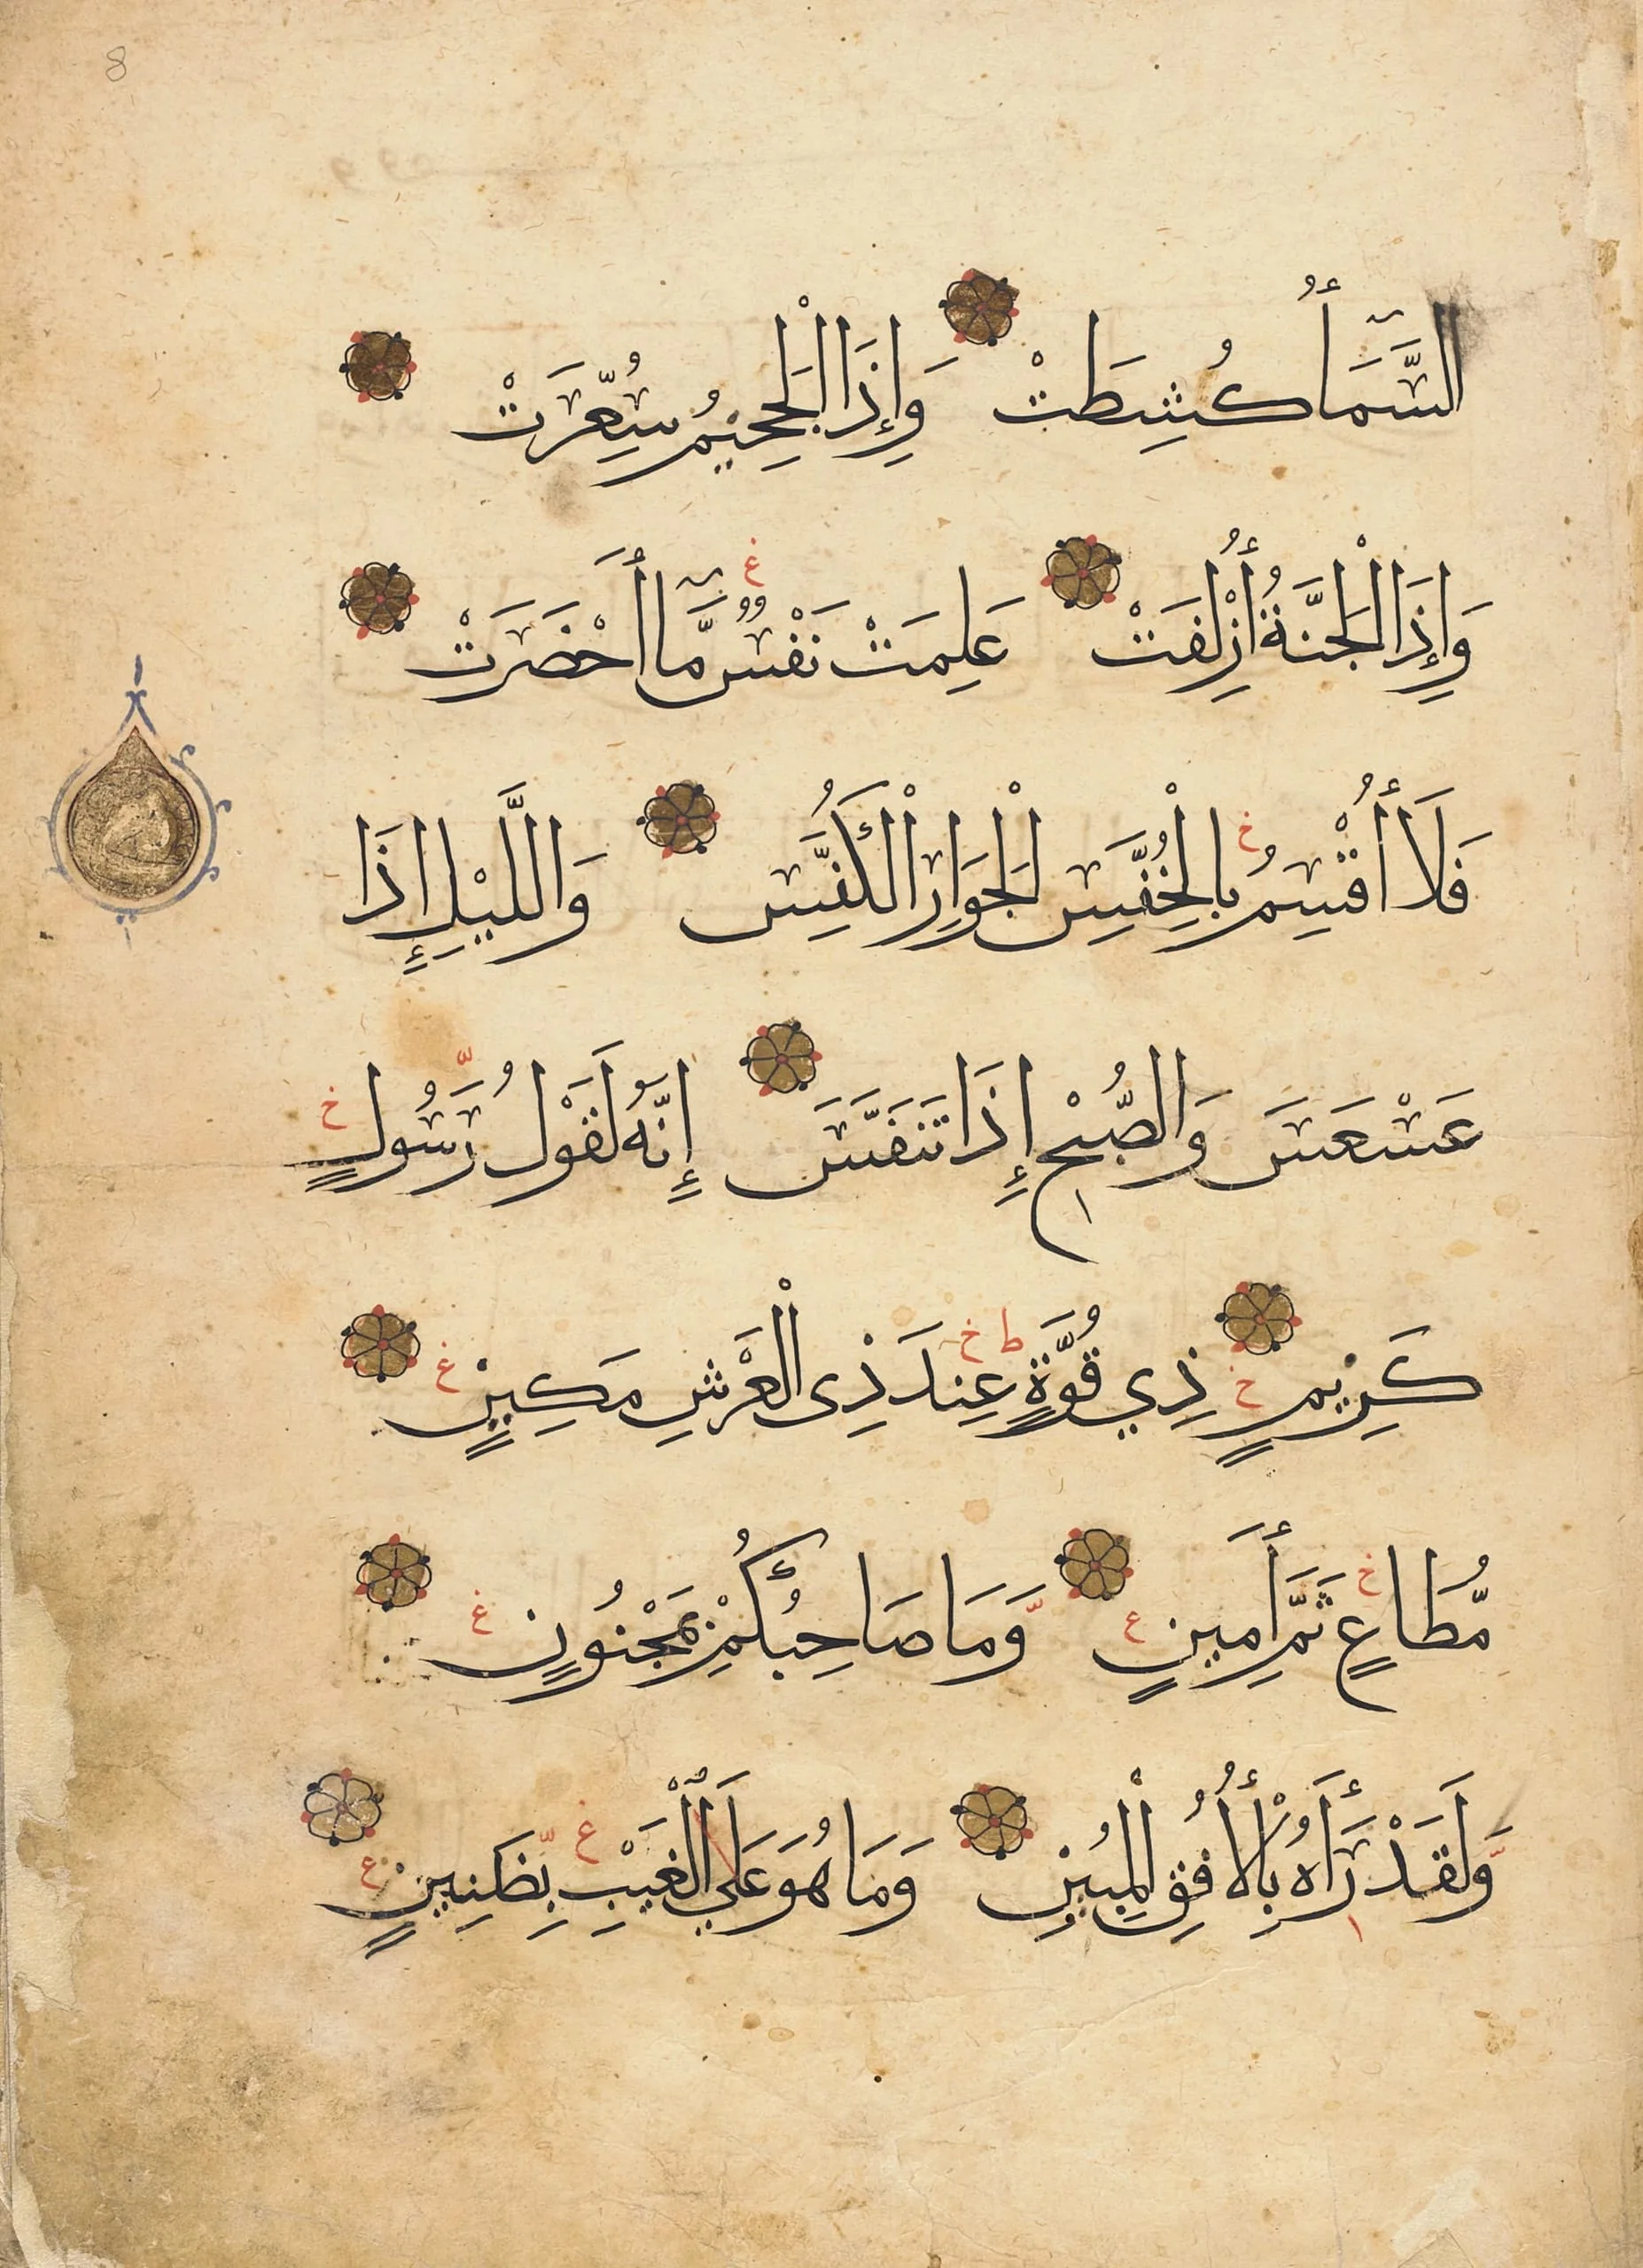 السَّمَاءُ كُشِطَتْ وَإِذَا الْجَحِيمُ سُعِّرَتْ
وَإِذَا الْجَنَّةُ أُزْلِفَتْ عَلِمَتْ نَفْسٌ مَّا أَحْضَرَتْ
فَلَا أُقْسِمُ بِالْخُنَّسِ الْجَوَارِ الْكُنَّسِ وَاللَّيْلِ إِذَا
عَسْعَسَ وَالصُّبْحِ إِذَا تَنَفَّسَ إِنَّهُ لَقَوْلُ رَسُولٍ
كَرِيمٍ ذِي قُوَّةٍ عِندَ ذِى الْعَرْشِ مَكِينٍ
مُّطَاعٍ ثَمَّ أَمِينٍ وَّمَا صَاحِبُكُمْ بِمَجْنُونٍ
وَّلَقَدْ رَأَاهُ بِالْأُفُقِ الْمُبِينِ وَمَا هُوَ عَلَي الْغَيْبِ بِظَنِينٍ